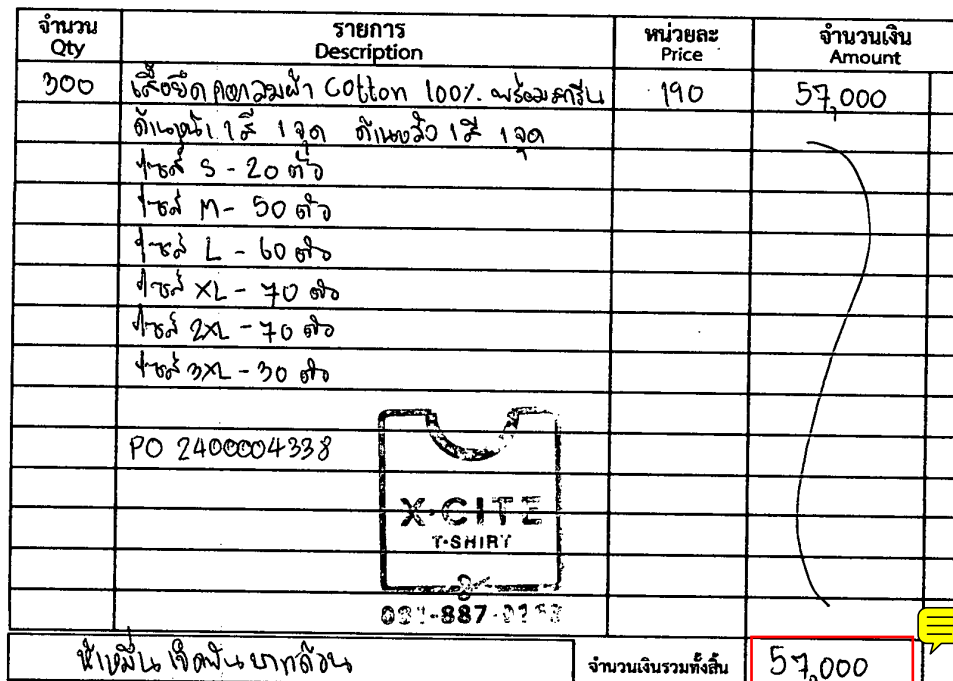 จำนวน รายการ หน่วยละ จำนวนเงิน
Qty Description Price Amount
300 เสื้อยืดคอกลมผ้า Cotton 100% พร้อมสกรีน 190 57,000
ด้านหน้า 1 สี 1 จุด ด้านหลัง 1 สี 1 จุด
ไซส์ S - 20 ตัว
ไซส์ M - 50 ตัว
ไซส์ L - 60 ตัว
ไซส์ XL - 70 ตัว
ไซส์ 2XL - 70 ตัว
ไซส์ 3XL - 30 ตัว
PO 2400004338
X·CITE
T·SHIRT
ห้าหมื่นเจ็ดพันบาทถ้วน จำนวนเงินรวมทั้งสิ้น 57,000